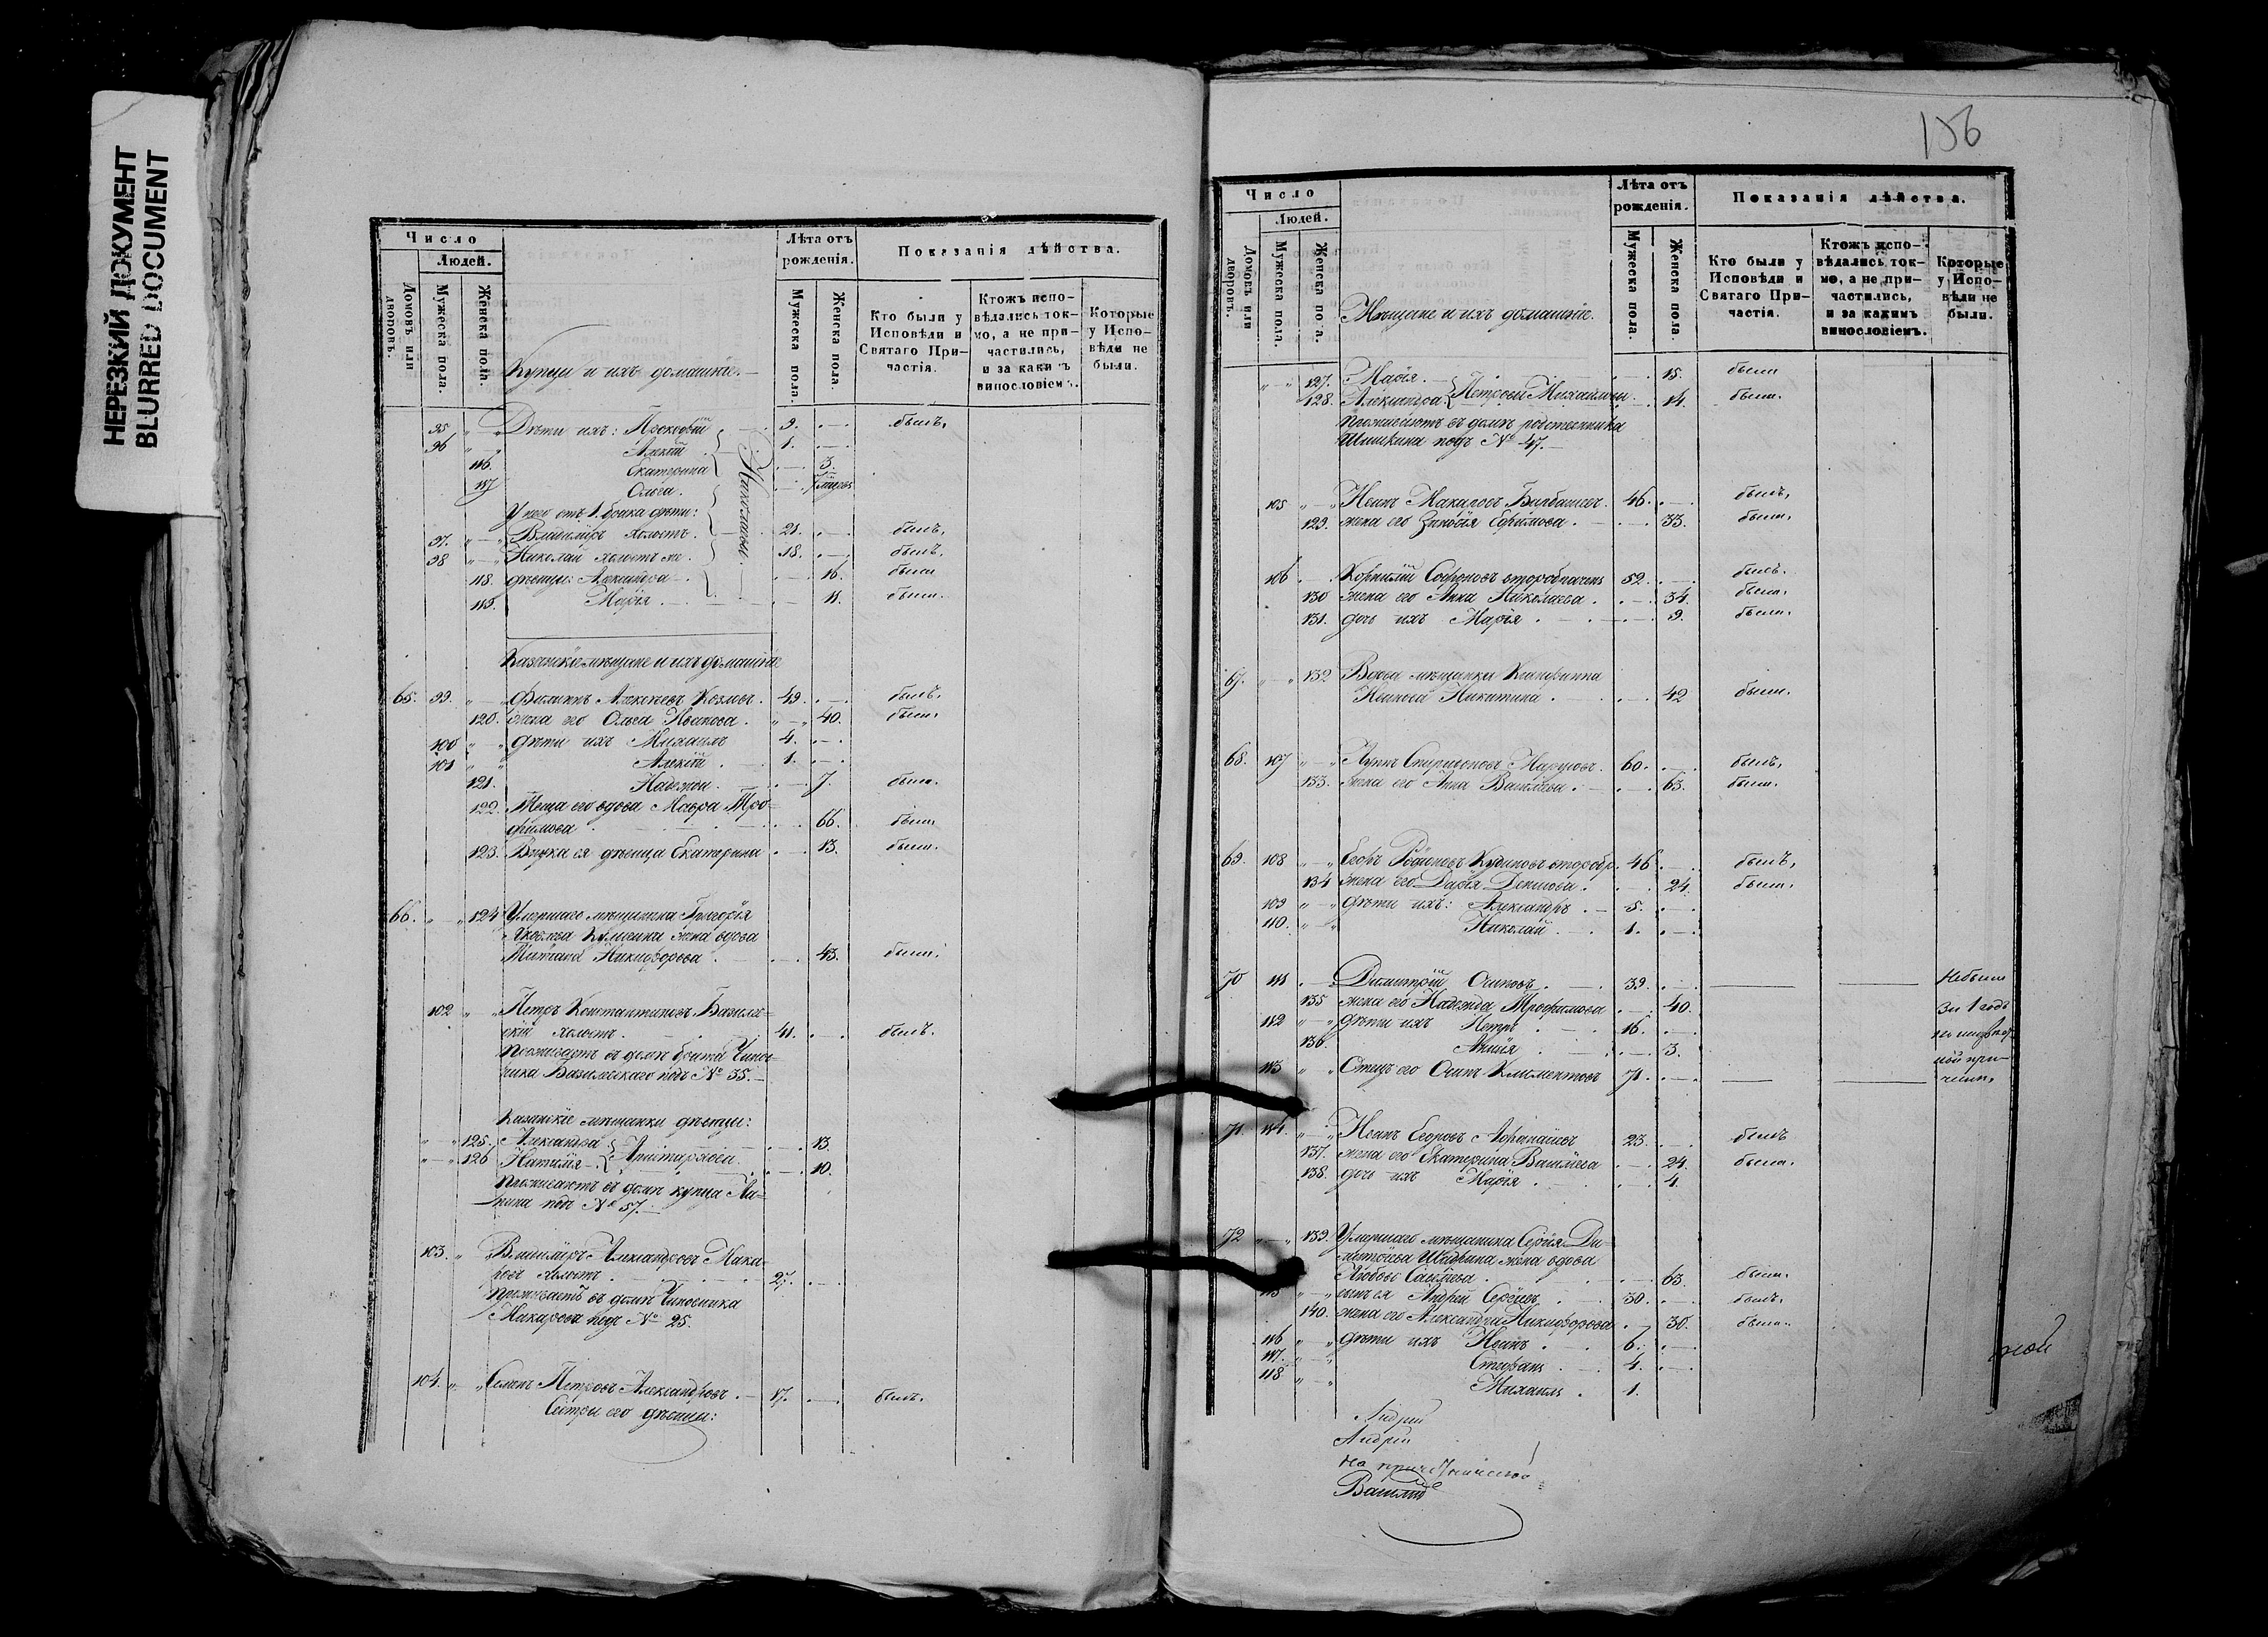 НЕРЕЗКИЙ ДОКУМЕНТ
BLURRED DOCUMENT
Число
Людей.
Домовъ или дворовъ.
Мужеска пола.
Женска пола.
Купцы и ихъ домашніе.
Лѣта отъ рожденія.
Мужеска пола.
Женска пола.
Показанія дѣйства.
Кто были у Исповѣди и Святаго Причастія.
Ктожъ исповѣдались токмо, а не причастились, и за какимъ винословіемъ.
Которые у Исповѣди не были.
95 Дѣти ихъ: Прокофій 9. былъ,
96 Алексій 1.
116. Екатерина 3.
117 Ольга.
У него отъ 1. брака дѣти:
97. Владиміръ холостъ. 21. былъ,
98 Николай холостъ же. 18. былъ.
118. дѣвицы: Александра 16. была
119. Марія. 11. была.
Казанскіе мѣщане и ихъ домашніе
65. 99. Филиппъ Алексѣевъ Козловъ. 49. былъ.
120. жена его Ольга Иванова. 40. была.
100 дѣти ихъ Михаилъ 4.
101 Алексій 1.
121. Надежда. 7. была.
122. Теща его вдова Мавра Тро-
фимова 66. была
123. Внука ея дѣвица Екатерина 13. была.
66. 124 Умершаго мѣщанина Григорія
Яковлева жена вдова
Татіана Никифорова 43. была.
102 Петръ Константиновъ Базилев-
скій холостъ. 41. былъ.
Проживаетъ въ домѣ брата Чинов-
ника Базилевскаго подъ № 35.
Казанскіе мѣщанки дѣвицы:
125. Александра 13.
126 Наталія Аристарховы. 10.
Проживаютъ въ домѣ купца
подъ № 57.
103. Владиміръ Александровъ Мака-
ровъ холостъ. 27.
Проживаетъ въ домѣ Чиновника
Макарова подъ № 25.
104. Семенъ Петровъ Александровъ. 17. былъ.
Сестры его дѣвицы:
156
Число
Людей.
Домовъ или дворовъ.
Мужеска пола.
Женска пола.
Мѣщане и ихъ домашніе.
Лѣта отъ рожденія.
Мужеска пола.
Женска пола.
Показанія дѣйства.
Кто были у Исповѣди и Святаго Причастія.
Ктожъ исповѣдались токмо, а не причастились, и за какимъ винословіемъ.
Которые у Исповѣди не были.
127. Марія. 15. была
128. Александра Петровы 14. была.
Проживаютъ въ домѣ родственника
Шишкина подъ № 47.
105 Иванъ Макаровъ 46. былъ,
129. жена его Зиновія Ефимова. 33. была,
106 Корнилій Софроновъ второбрачен. 52. былъ.
130 жена его Анна Николаева. 34. была,
131. дочь ихъ Марія 9. была.
67. 132 Вдова мѣщанка
Иванова Никитина. 42 была.
68. 107 Спиридоновъ 60. былъ,
133. жена его Анна Васильева. 63. была.
69. 108 Егоръ второбр. 46 былъ,
134 жена его Дарія Денисова. 24. была.
109 дѣти ихъ: Александръ. 5.
110. Николай. 1.
70 111 Димитрій Осиповъ. 39. Небыли
135 жена его Надежда Трофимова 40. за 1 годъ
112 дѣти ихъ Петръ 16.
136. 3.
113 Отецъ его Осипъ Климентовъ 71. чинѣ.
71. 114. Иванъ Егоровъ Афанасьевъ 23. былъ
137. жена его Екатерина Васильева 24. была.
138. дочь ихъ Марія. 4.
72 139. Умершаго мѣщанина Сергія Ди-
митріева жена вдова
Любовь Савельева. 63. была.
115 сынъ ея Андрей Сергѣевъ 30. былъ,
140. жена его Александра Никифорова 30. была.
116 дѣти ихъ Иванъ. 6.
117. Стефанъ 4.
118 Михаилъ 1.
Андрей
Андрей
Василій